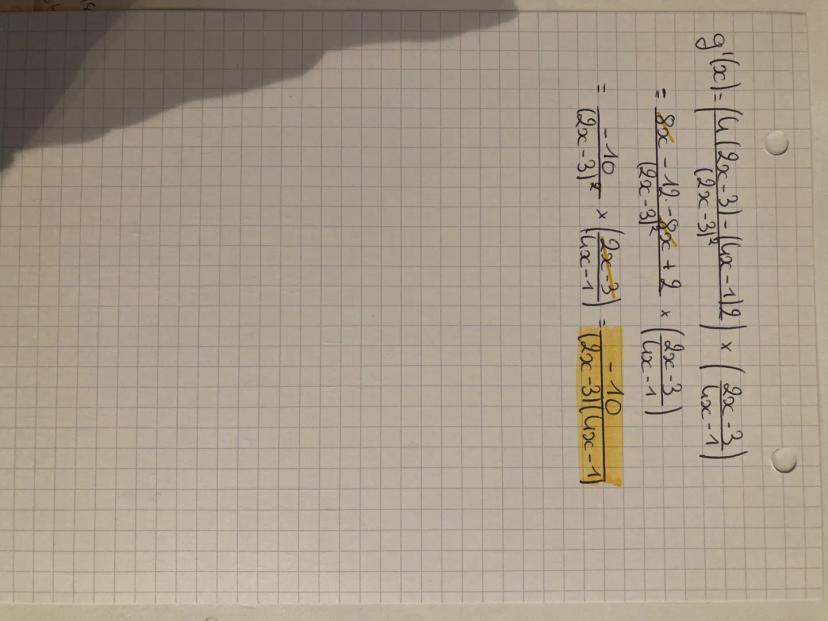 g'(x) = (4(2x-3) - (4x-1)2 / (2x-3)²) × (2x-3 / 4x-1)
= 8x - 12 - 8x + 2 / (2x-3)² × (2x-3 / 4x-1)
= -10 / (2x-3)² × (2x-3 / 4x-1) = -10 / (2x-3)(4x-1)